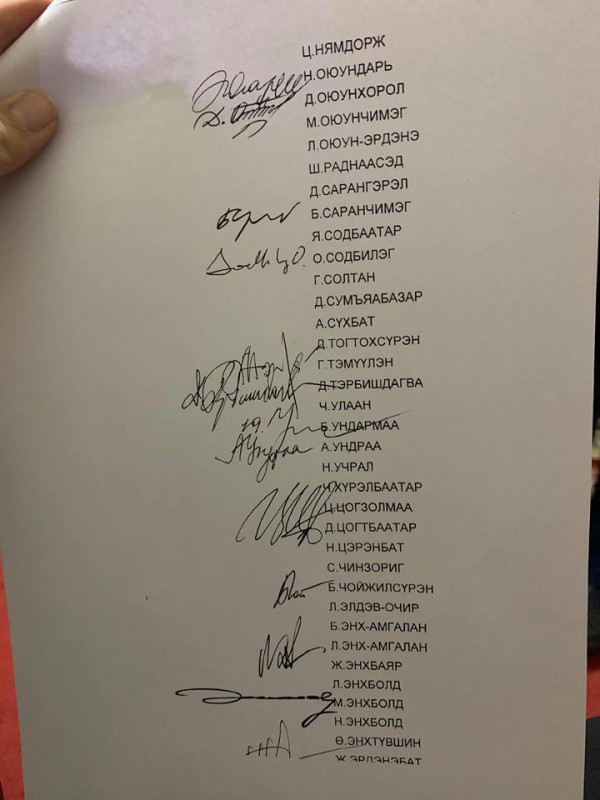 Ц.НЯМДОРЖ
Н.ОЮУНДАРЬ
Д.ОЮУНХОРОЛ
М.ОЮУНЧИМЭГ
Л.ОЮУН-ЭРДЭНЭ
Ш.РАДНААСЭД
Д.САРАНГЭРЭЛ
Б.САРАНЧИМЭГ
Я.СОДБААТАР
О.СОДБИЛЭГ
Г.СОЛТАН
Д.СУМЪЯАБАЗАР
А.СҮХБАТ
Д.ТОГТОХСҮРЭН
Г.ТЭМҮҮЛЭН
Д.ТЭРБИШДАГВА
Ч.УЛААН
Б.УНДАРМАА
А.УНДРАА
Н.УЧРАЛ
Ч.ХҮРЭЛБААТАР
Ц.ЦОГЗОЛМАА
Д.ЦОГТБААТАР
Н.ЦЭРЭНБАТ
С.ЧИНЗОРИГ
Б.ЧОЙЖИЛСҮРЭН
Л.ЭЛДЭВ-ОЧИР
Б.ЭНХ-АМГАЛАН
Л.ЭНХ-АМГАЛАН
Ж.ЭНХБАЯР
Л.ЭНХБОЛД
М.ЭНХБОЛД
Н.ЭНХБОЛД
Ө.ЭНХТҮВШИН
Ж.ЭРДЭНЭБАТ